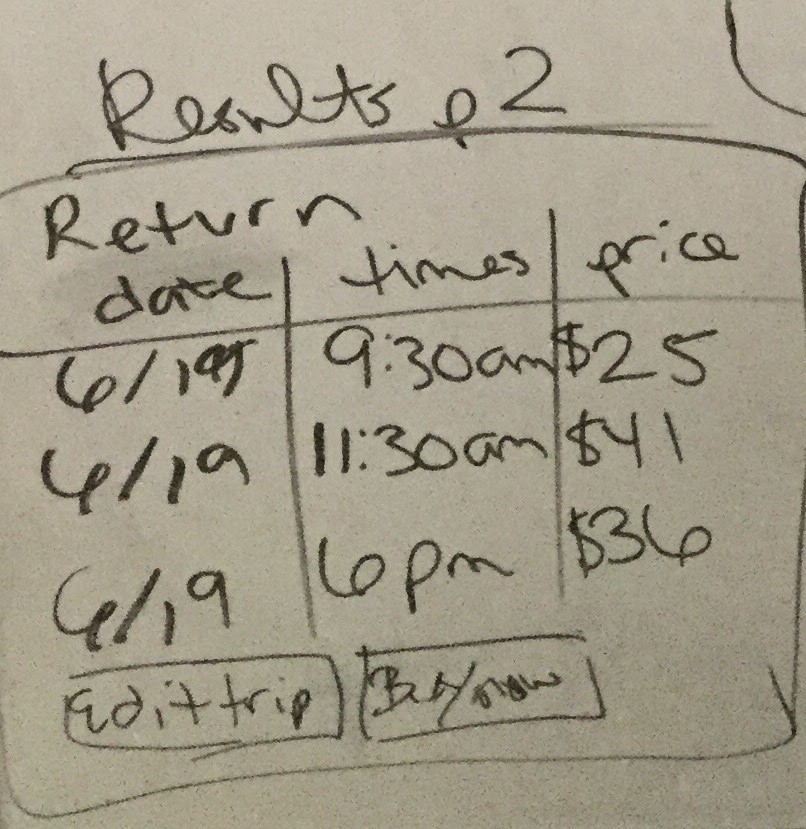 Results p2
Return
date times price
6/19 9:30am $25
6/19 11:30am $41
6/19 6pm $36
Edit trip Buy now